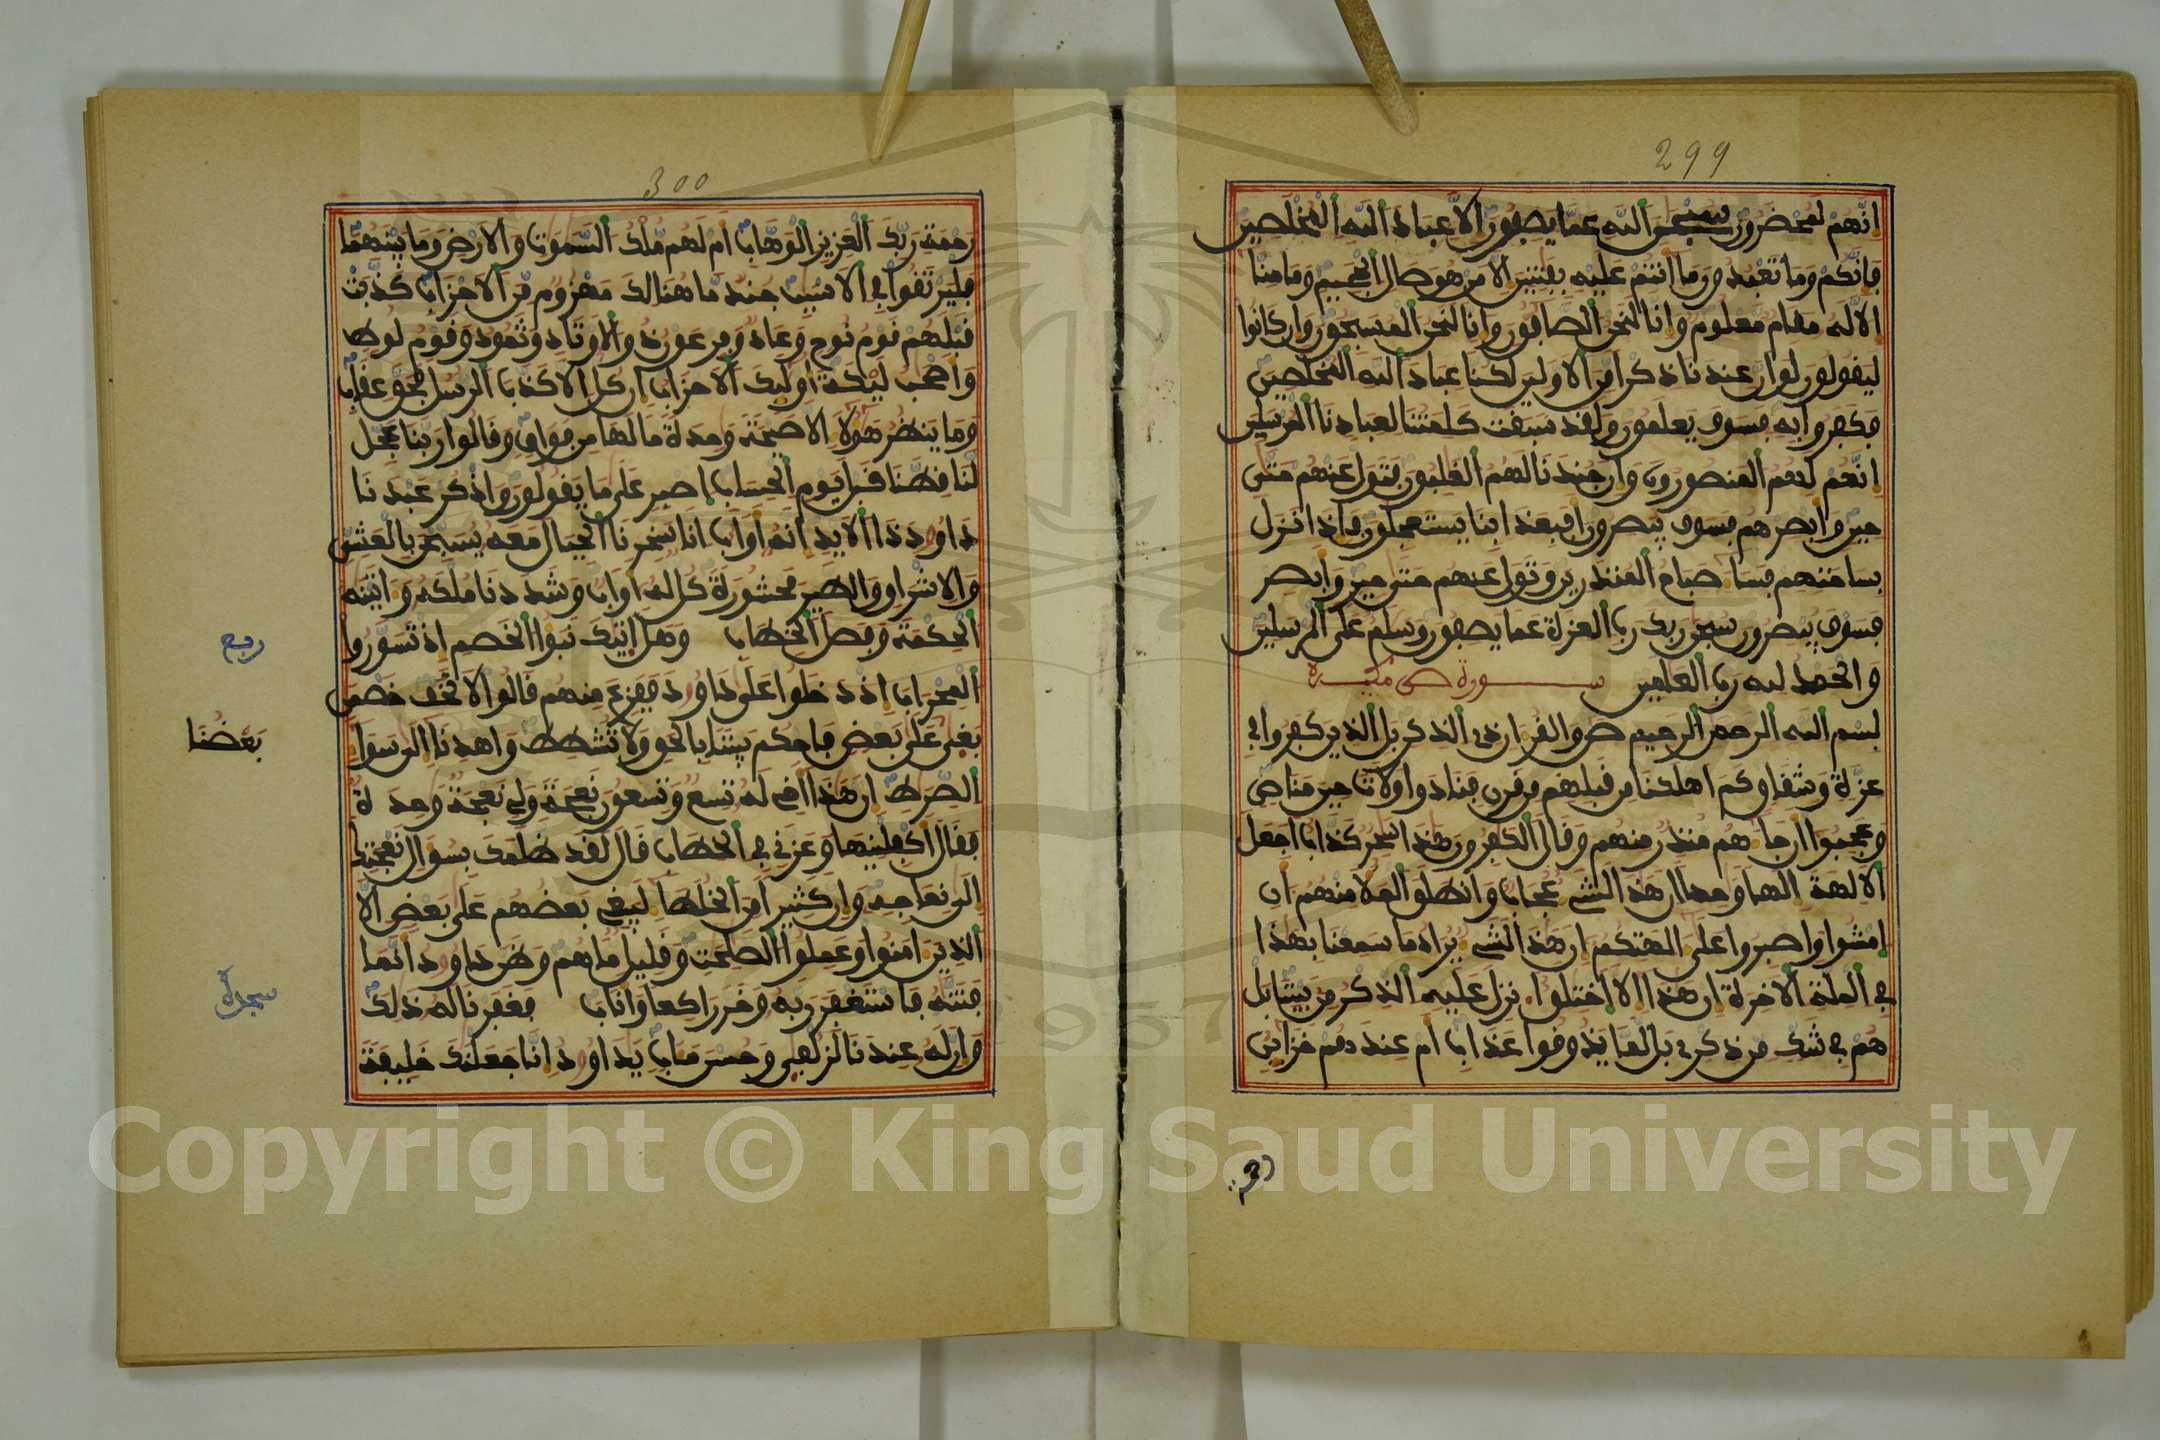 299
انهم لمحضرون سبحن الله عما يصفون الا عباد الله المخلصين
فانكم وما تعبدون وما انتم عليه بفتنين الا من هو صال الجحيم وما منا
الا له مقام معلوم وانا لنحن الصافون وانا لنحن المسبحون وان كانوا
ليقولون لو ان عندنا ذكرا من الاولين لكنا عباد الله المخلصين
فكفروا به فسوف يعلمون ولقد سبقت كلمتنا لعبادنا المرسلين
انهم لهم المنصورون وان جندنا لهم الغلبون فتول عنهم حتى
حين وابصرهم فسوف يبصرون افبعذابنا يستعجلون فاذا نزل
بساحتهم فساء صباح المنذرين وتول عنهم حتى حين وابصر
فسوف يبصرون سبحن ربك رب العزة عما يصفون وسلم على المرسلين
والحمد لله رب العلمين سورة ص مكية
بسم الله الرحمن الرحيم ص والقران ذى الذكر بل الذين كفروا فى
عزة وشقاق كم اهلكنا من قبلهم من قرن فنادوا ولات حين مناص
وعجبوا ان جاءهم منذر منهم وقال الكفرون هذا سحر كذاب اجعل
الالهة الها وحدا ان هذا لشىء عجاب وانطلق الملا منهم ان
امشوا واصبروا على الهتكم ان هذا لشىء يراد ما سمعنا بهذا
فى الملة الاخرة ان هذا الا اختلق انزل عليه الذكر من بيننا بل
هم فى شك من ذكرى بل لما يذوقوا عذاب ام عندهم خزاين
300
رحمة ربك العزيز الوهاب ام لهم ملك السموت والارض وما بينهما
فليرتقوا فى الاسبب جند ما هنالك مهزوم من الاحزاب كذبت
قبلهم قوم نوح وعاد وفرعون ذو الاوتاد وثمود وقوم لوط
واصحب ليكة اوليك الاحزاب ان كل الا كذب الرسل فحق عقاب
وما ينظر هؤلاء الا صيحة وحدة ما لها من فواق وقالوا ربنا عجل
لنا قطنا قبل يوم الحساب اصبر على ما يقولون واذكر عبدنا
داود ذا الايد انه اواب انا سخرنا الجبال معه يسبحن بالعشى
والاشراق والطير محشورة كل له اواب وشددنا ملكه واتينه
الحكمة وفصل الخطاب وهل اتيك نبؤا الخصم اذ تسوروا
المحراب اذ دخلوا على داود ففزع منهم قالوا لا تخف خصمن
بغى على بعض فاحكم بيننا بالحق ولا تشطط واهدنا الى سواء
الصرط ان هذا اخى له تسع وتسعون نعجة ولى نعجة وحدة
فقال اكفلنيها وعزنى فى الخطاب قال لقد ظلمك بسؤال نعجتك
الى نعاجه وان كثيرا من الخلطاء ليبغى بعضهم على بعض الا
الذين امنوا وعملوا الصلحت وقليل ما هم وظن داود انما
فتنه فاستغفر ربه وخر راكعا واناب فغفرنا له ذلك
وان له عندنا لزلفى وحسن مـاب يداود انا جعلنك خليفة
ربع
بعضنا
سجدة
Copyright © King Saud University
1957